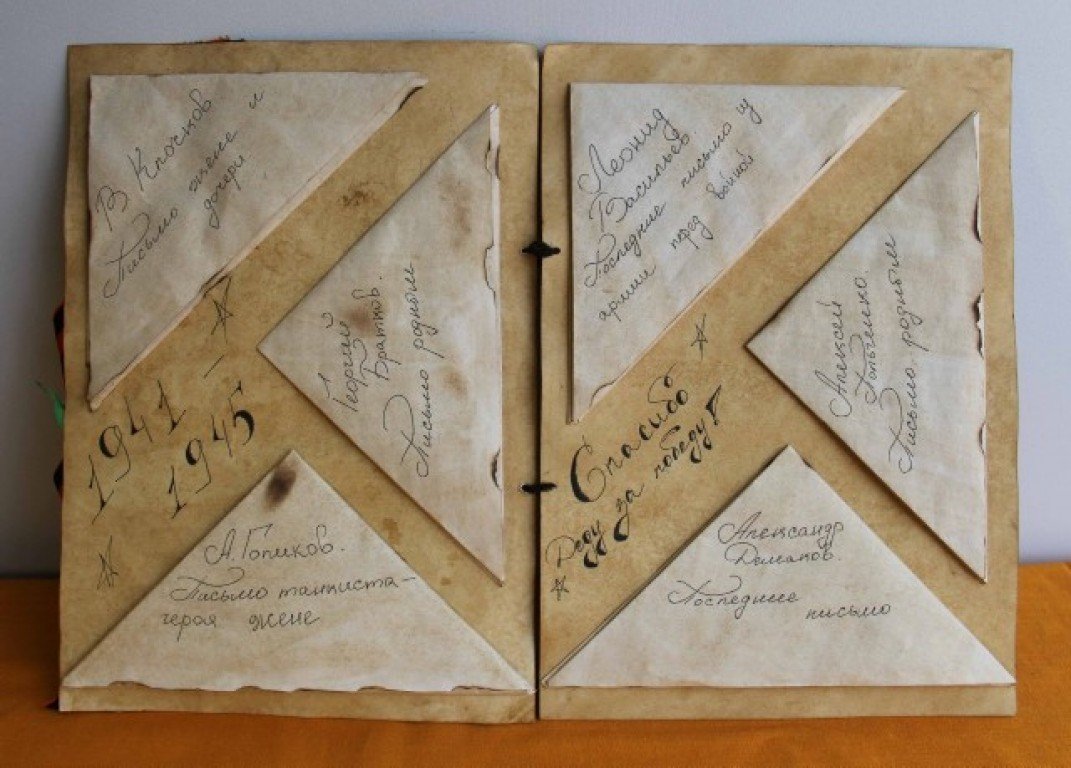 В Клочков
Письмо жене и
дочери
Георгий
Братков.
Письмо родным
1941 –
1945
А. Голиков.
Письмо танкиста-
героя жене
Леонид
Васильев
Последние письмо из
армии перед войной
Алексей
Письмо родным
Спасибо
Деду за победу!
Александр
Последнее
письмо